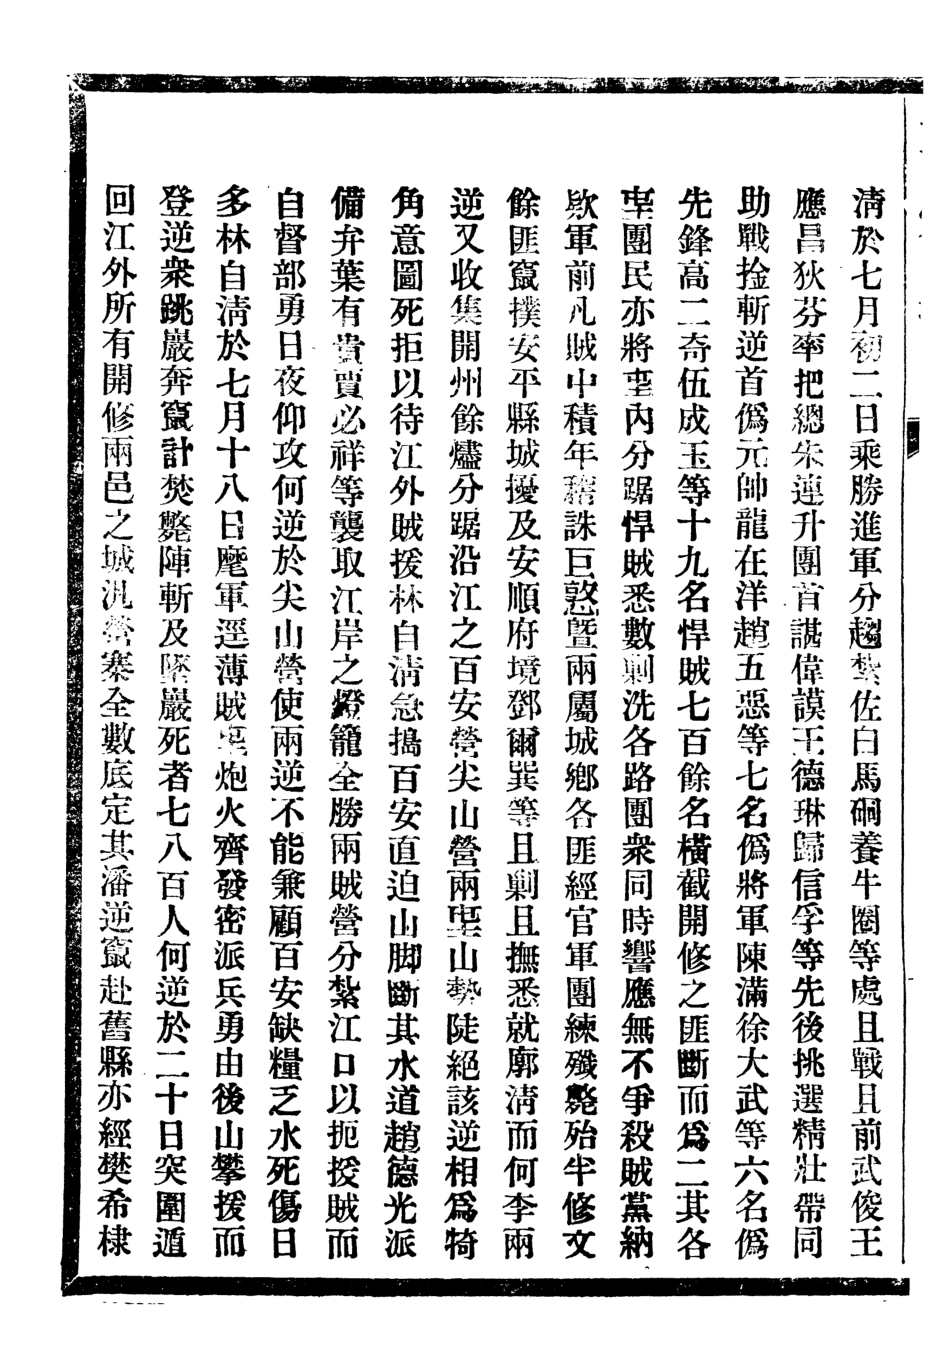 清於七月初二日乘勝進軍分趨紮佐白馬硐養牛圈等處且戰且前武俊王
應昌狄芬率把總朱連升團首諶偉謨王德琳歸信孚等先後挑選精壯帶同
助戰捦斬逆首僞元帥龍在洋趙五惡等七名僞將軍陳滿徐大武等六名僞
先鋒高二奇伍成玉等十九名悍賊七百餘名橫截開修之匪斷而爲二其各
坉團民亦將坉內分踞悍賊悉數剿洗各路團衆同時響應無不爭殺賊黨納
欵軍前凡賊中積年稽誅巨憝曁兩屬城鄉各匪經官軍團練殲斃殆半修文
餘匪竄撲安平縣城擾及安順府境鄧爾巽等且剿且撫悉就廓清而何李兩
逆又收集開州餘燼分踞沿江之百安營尖山營兩坉山勢陡絕該逆相爲犄
角意圖死拒以待江外賊援林自清急搗百安直迫山脚斷其水道趙德光派
備弁葉有貴賈必祥等襲取江岸之燈籠全勝兩賊營分紮江口以扼援賊而
自督部勇日夜仰攻何逆於尖山營使兩逆不能兼顧百安缺糧乏水死傷日
多林自清於七月十八日麾軍逕薄賊坉炮火齊發密派兵勇由後山攀援而
登逆衆跳巖奔竄計焚斃陣斬及墜巖死者七八百人何逆於二十日突圍遁
回江外所有開修兩邑之城汛營寨全數底定其潘逆竄赴舊縣亦經樊希棣